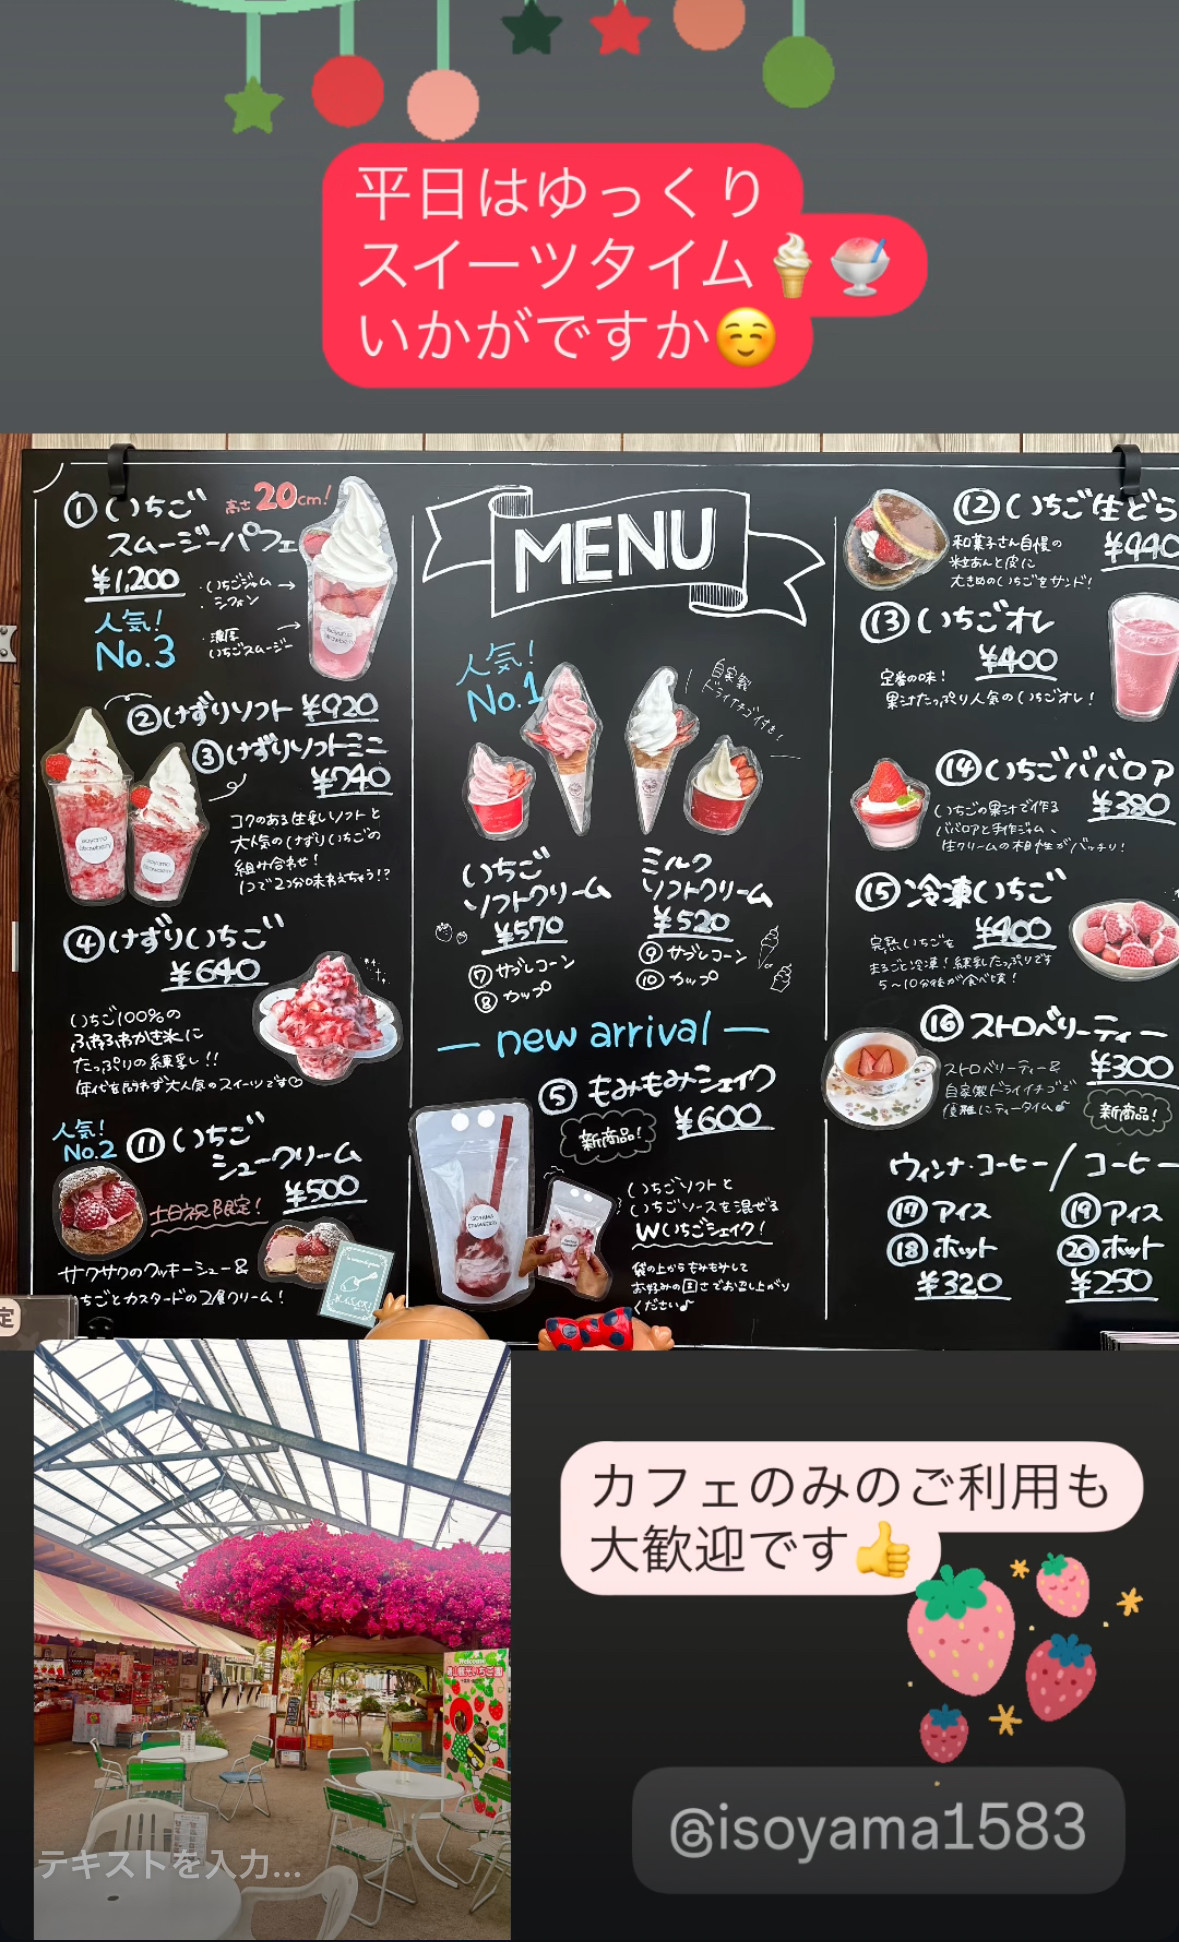 平日はゆっくり
スイーツタイム🍦🍧
いかがですか☺️
①いちご
スムージーパフェ
高さ20cm!
¥1,200
・いちごジャム
・シフォン
・濃厚
いちごスムージー
人気!
No.3
②けずりソフト ¥920
③けずりソフトミニ
¥740
コクのある生乳ソフトと
大人気のけずりいちごの
組み合わせ!
1つで2つ分味わえちゃう!?
④けずりいちご
¥640
いちご100%の
ふわふわかき氷に
たっぷりの練乳!!
年代を問わず大人気のスイーツです♡
人気!
No.2
⑪いちご
シュークリーム
¥500
土日祝限定!
サクサクのクッキーシュー&
いちごとカスタードの2層クリーム!
MENU
人気!
No.1
自家製
ドライイチゴ付き!
いちご
ソフトクリーム
¥570
⑦サブレコーン
⑧カップ
ミルク
ソフトクリーム
¥520
⑨サブレコーン
⑩カップ
— new arrival —
⑤もみもみシェイク
新商品!
¥600
いちごソフトと
いちごソースを混ぜる
Wいちごシェイク!
袋の上からもみもみして
お好みの固さでお召し上がり
ください♪
⑫いちご生どら
¥440
和菓子さん自慢の
粒あんと皮に
大きめのいちごをサンド!
⑬いちごオレ
¥400
定番の味!
果汁たっぷり人気のいちごオレ!
⑭いちごババロア
¥380
いちごの果汁で作る
ババロアと手作ジャム、
生クリームの相性がバッチリ!
⑮冷凍いちご
¥400
完熟いちごを
まるごと冷凍!練乳たっぷりです
5〜10分後が食べ頃!
⑯ストロベリーティー
¥300
ストロベリーティー&
自家製ドライイチゴで
優雅にティータイム♪
新商品!
ウィンナ・コーヒー/コーヒー
⑰アイス
⑱ホット
¥320
⑲アイス
⑳ホット
¥250
定
カフェのみのご利用も
大歓迎です👍
@isoyama1583
テキストを入力...